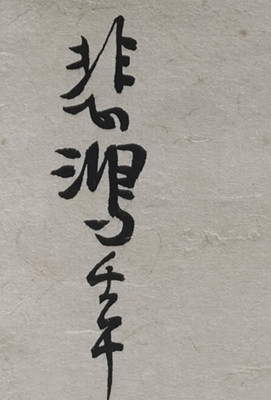 悲鴻壬午